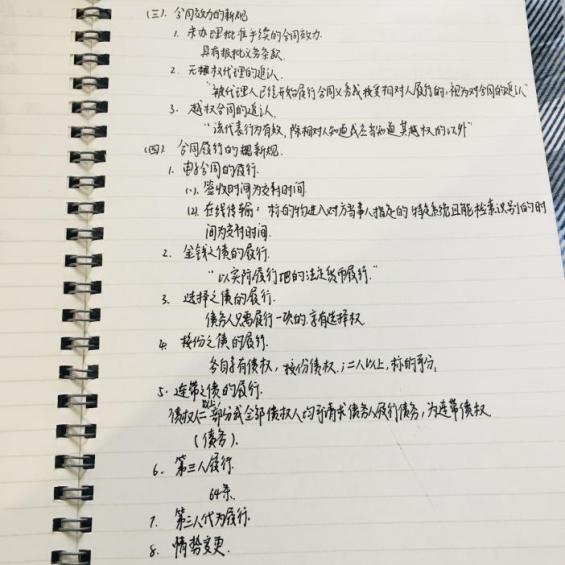 (三). 合同效力的新规
1. 未办理批准手续的合同效力.
具有报批义务条款.
2. 无权代理的追认.
"被代理人已经开始履行合同义务或接受相对人履行的,视为对合同的追认"
3. 越权合同的追认.
"该代表行为有效,除相对人知道或应当知道其越权的以外"
(四). 合同履行的新规.
1. 电子合同的履行.
(1). 签收时间为交付时间
(2). 在线传输,标的物进入对方当事人指定的特定系统且能检索识别的时
间为交付时间.
2. 金钱之债的履行.
"以实际履行地的法定货币履行."
3. 选择之债的履行.
债务人只需履行一项的.享有选择权.
4. 按份之债的履行.
各自享有债权,按份债权.;二人以上,标的可分.
5. 连带之债的履行.
债权仁以上,部分或全部债权人均可请求债务人履行债务,为连带债权.
(债务).
6. 第三人履行.
64条.
7. 第三人代为履行.
8. 情势变更.